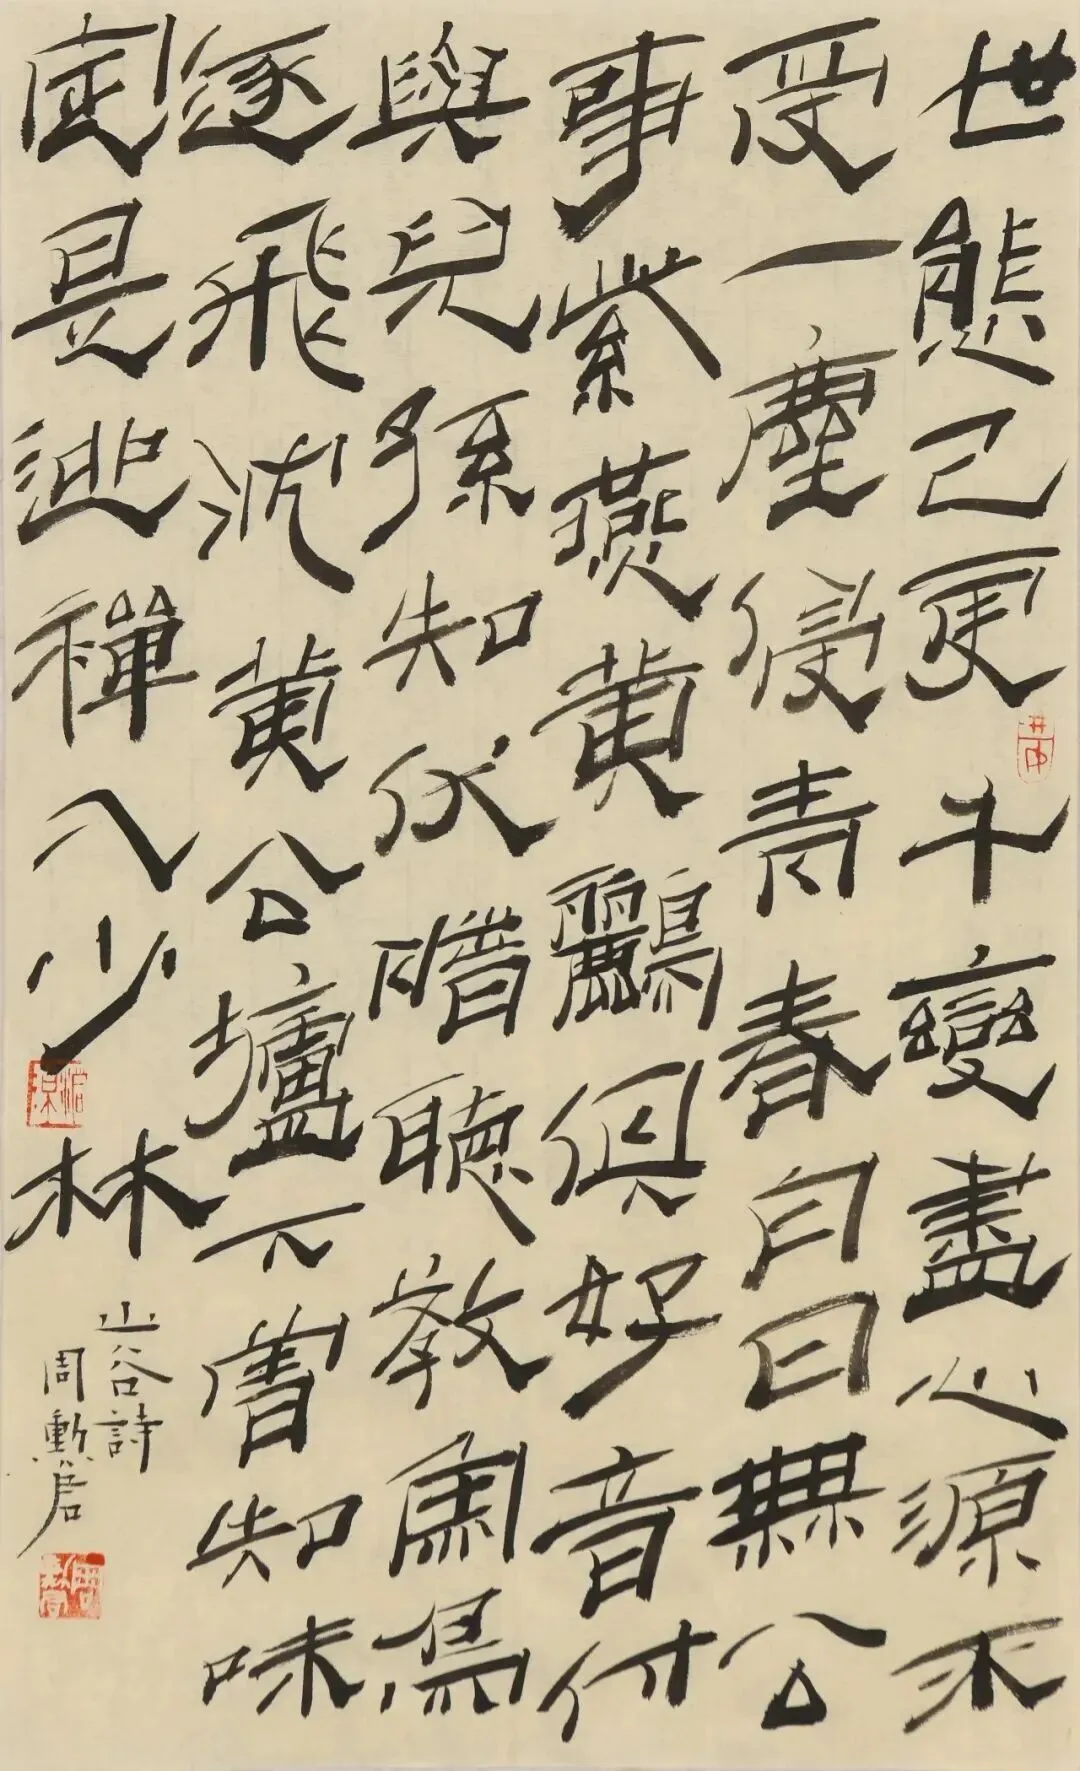 世態已更千變盡心源不
受一塵侵青春白日無公
事紫燕黃鸝俱好音付
與兒孫知伏腊聽教魚鳥
逐飛沈黃公壚下曾知味
定是逃禪入少林
山谷詩
周勳君